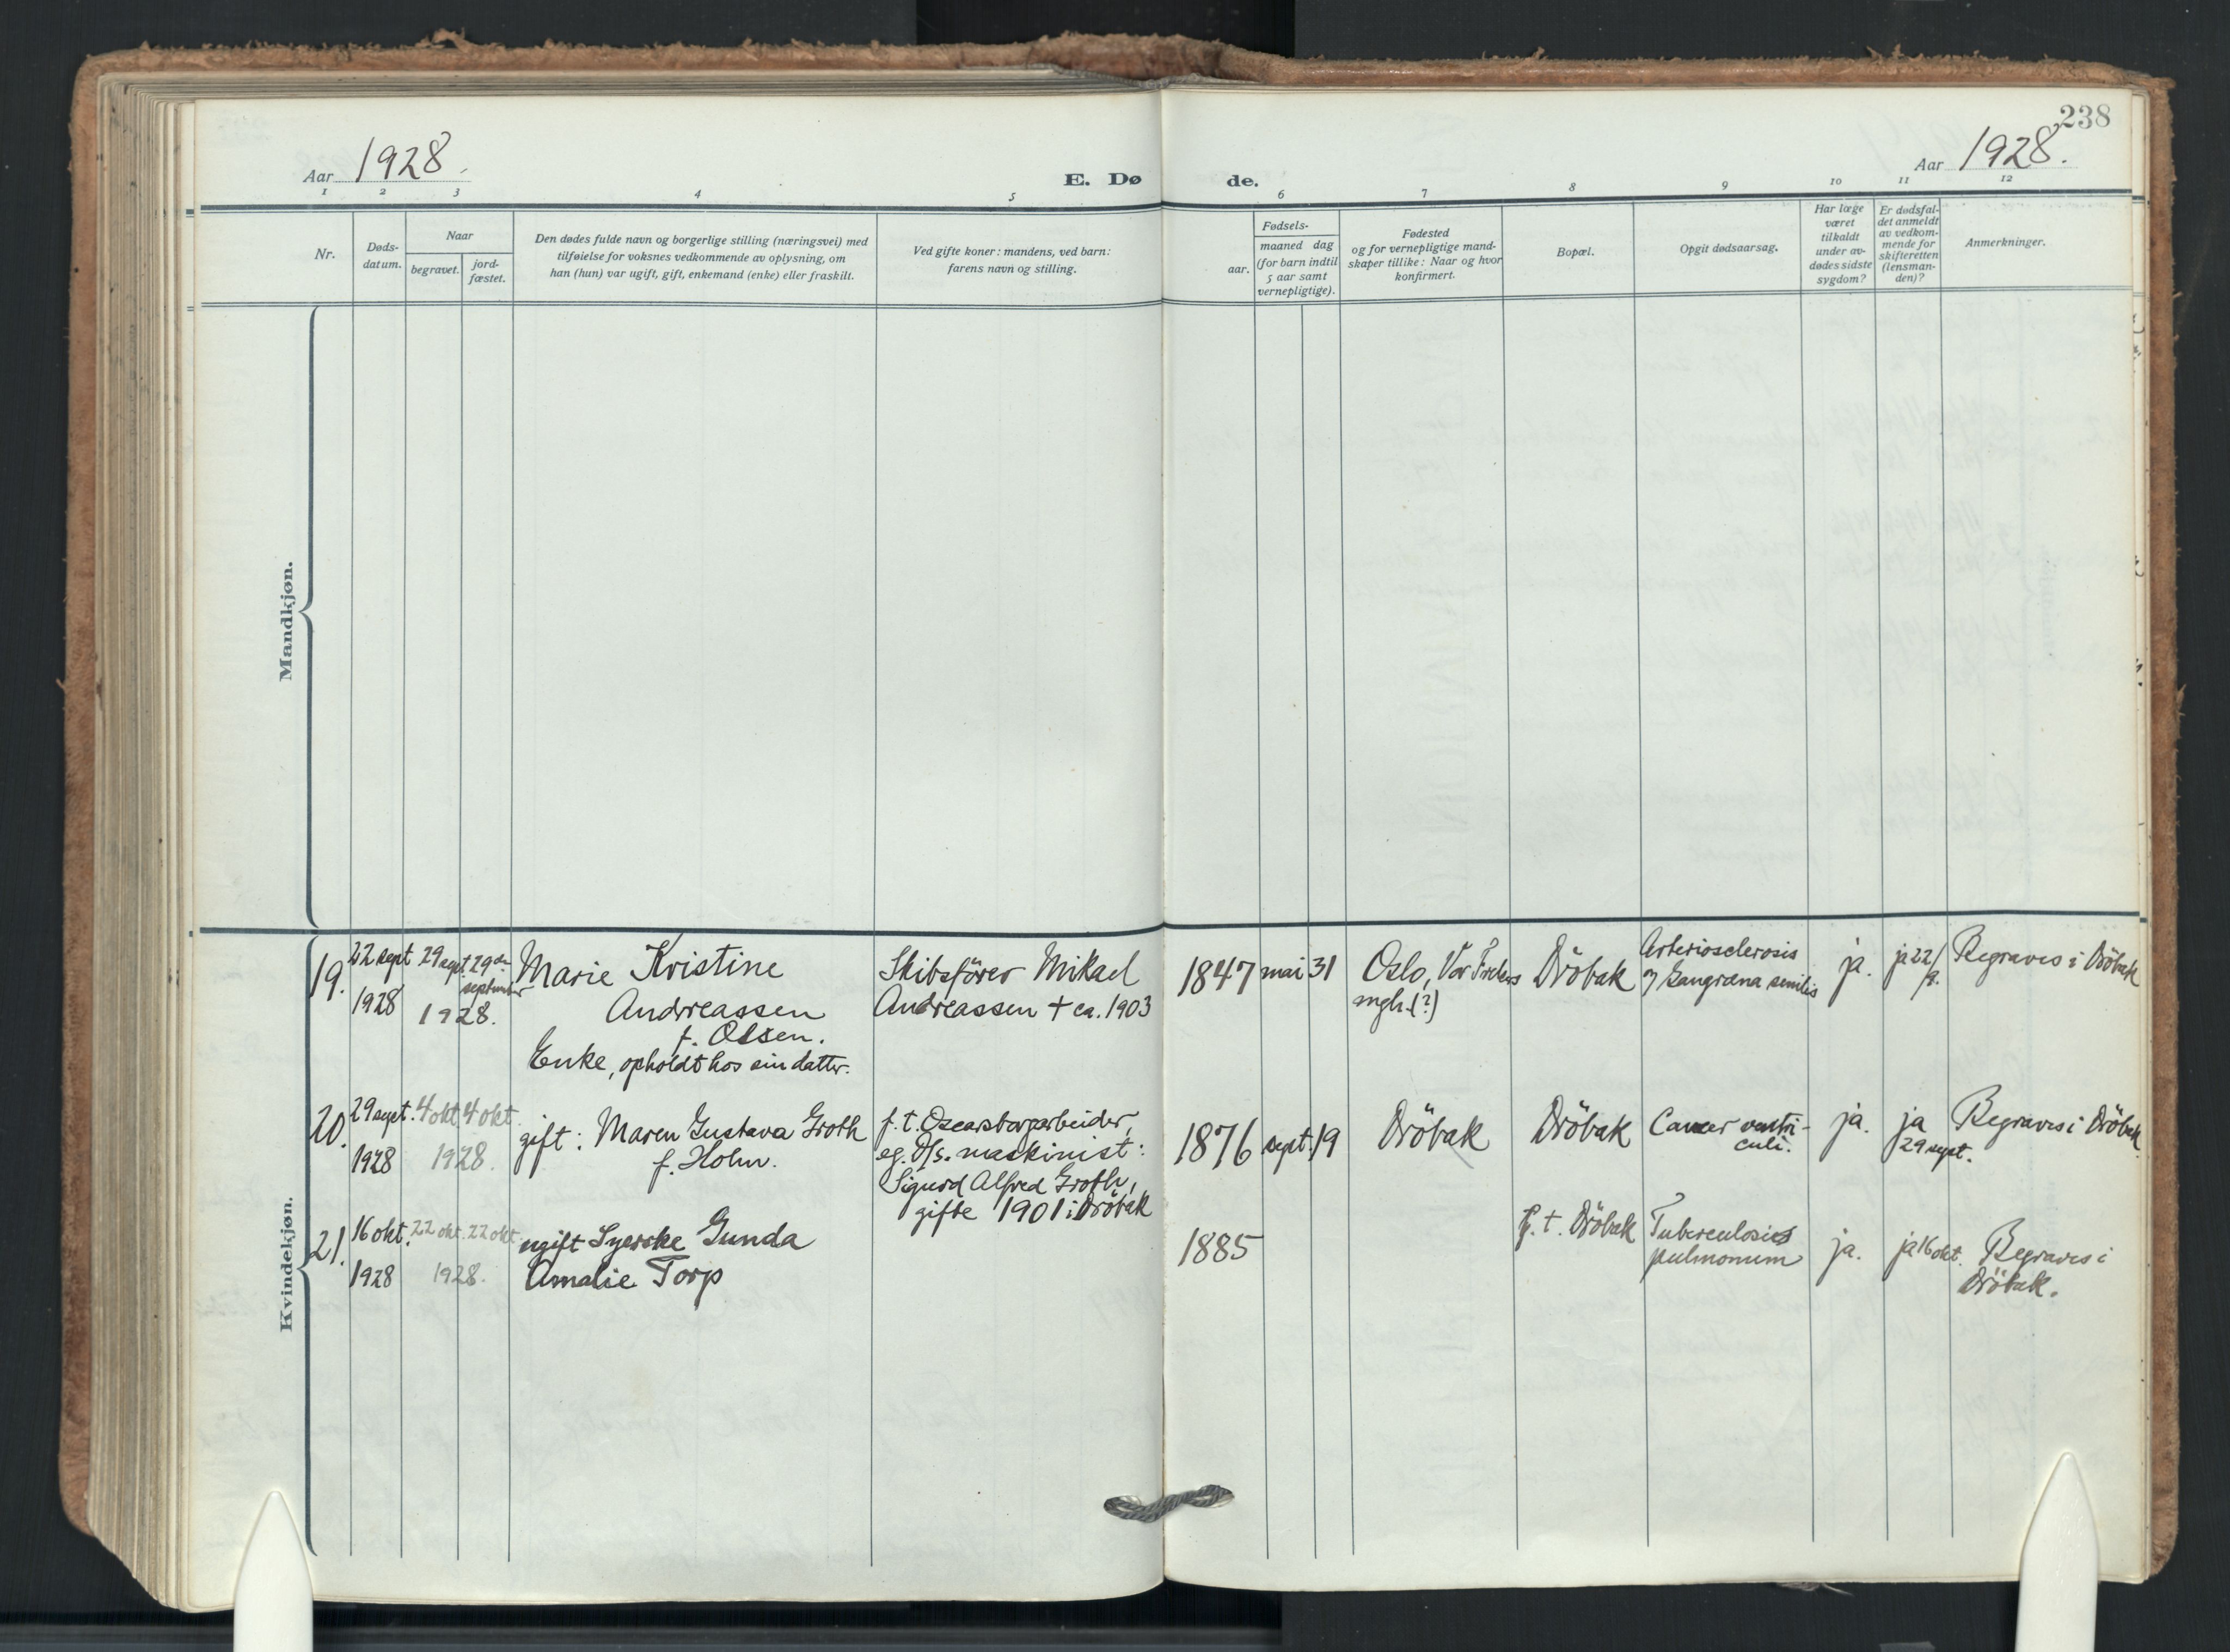 238
Aar 1928.
E. Dø de.
Aar 1928.
1 2 3 4 5 6 7 8 9 10 11 12
Nr.
Døds-
datum.
Naar
begravet.
jord-
fæstet.
Den dødes fulde navn og borgerlige stilling (næringsvei) med
tilføielse for voksnes vedkommende av oplysning, om
han (hun) var ugift, gift, enkemand (enke) eller fraskilt.
Ved gifte koner: mandens, ved barn:
farens navn og stilling.
Fødsels-
aar.
maaned dag
(for barn indtil
5 aar samt
vernepligtige).
Fødested
og for vernepligtige mand-
skaper tillike: Naar og hvor
konfirmert.
Bopæl.
Opgit dødsaarsag.
Har læge
været
tilkaldt
under av-
dødes sidste
sygdom?
Er dødsfal-
det anmeldt
av vedkom-
mende for
skifteretten
(lensman-
den)?
Anmerkninger.
Mandkjøn.
Kvindekjøn.
19.
22 sept
1928
29 sept.
29de
september
1928.
Marie Kristine
Andreassen
f. Olsen.
Enke, opholdt hos sin datter.
Skibsförer Mikael
Andreassen + ca. 1903
1847 mai 31
Oslo, Vor Frelsers
mgh.(?)
Dröbak
Arteriosclerosis
og Gangræna senilis
ja.
ja 22/
9.
Begraves i Dröbak
20.
29 sept.
1928
4 okt 4 okt.
1928.
gift: Maren Gustava Groth
f. Holm.
f. t. Oscarsborgarbeider,
eg. D/s. maskinist:
Sigurd Alfred Groth,
gifte 1901 i Dröbak
1876 sept. 19
Dröbak
Dröbak
Cancer ventri-
culi.
ja.
ja
29 sept.
Begraves i Dröbak
21.
16 okt.
1928
22 okt. 22 okt
1928.
ugift Syerske Gunda
Amalie Torp
1885
f. t. Dröbak
Tuberculosis
pulmonum
ja.
ja 16 okt.
Begraves i
Dröbak.